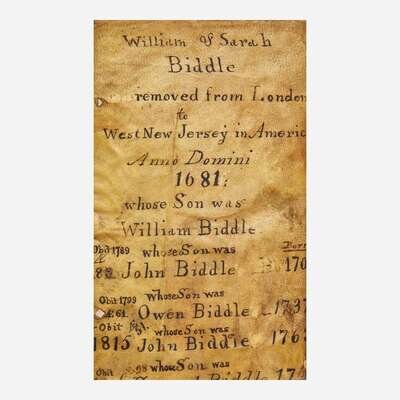 William & Sarah
Biddle
removed from London
to
West New Jersey in Americ
Anno Domini
1681:
whose Son was
William Biddle
Obit 1789 whose Son was Born
John Biddle 170
Obit 1799 whose Son was
Æ.61. Owen Biddle 1737
Obit whose Son was
1815 John Biddle 176
whose Son was